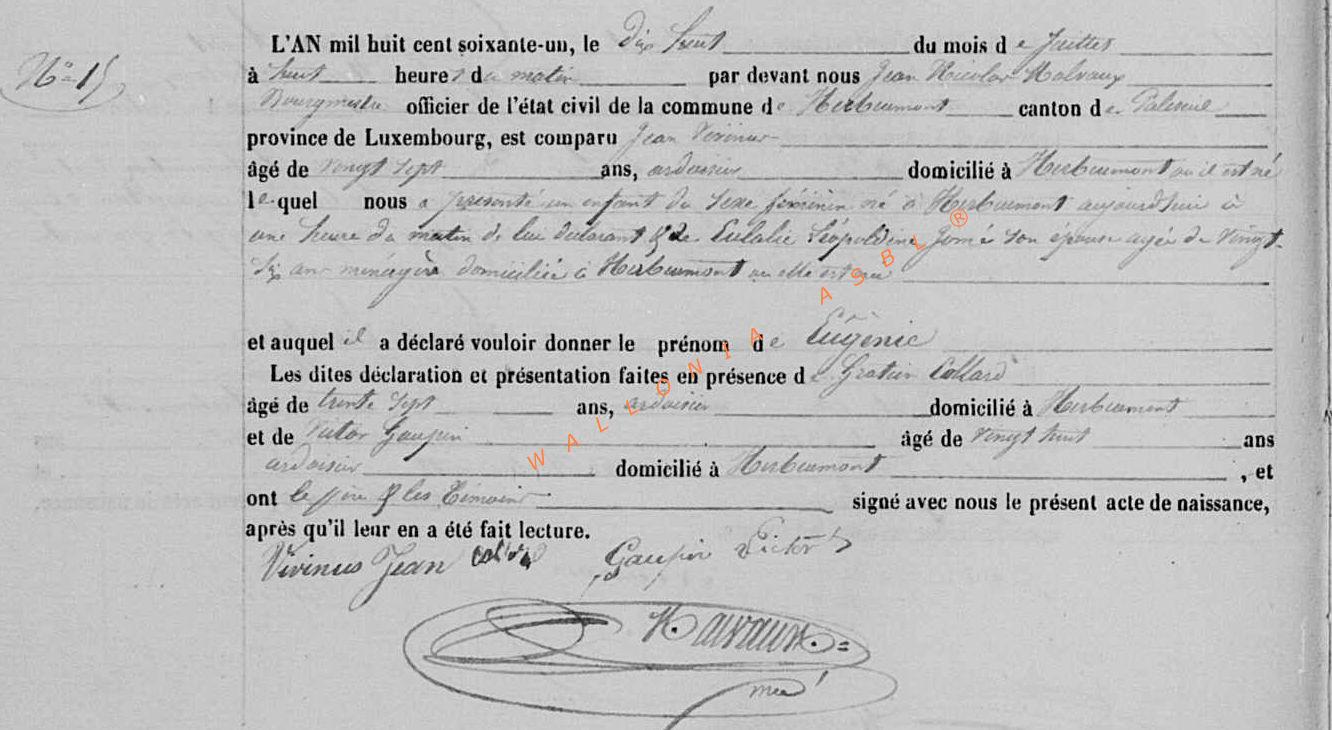 N°= 15
L'AN mil huit cent soixante-un, le dix huit du mois de Juillet
à huit heures du matin par devant nous Jean Nicolas Malvaux
Bourgmestre officier de l'état civil de la commune de Herbeumont canton de Paliseul
province de Luxembourg, est comparu Jean Vivinus
âgé de vingt sept ans, ardoisier domicilié à Herbeumont où il est né
lequel nous a présenté un enfant du sexe féminin né à Herbeumont aujourd'hui à
une heure du matin de lui déclarant & de Eulalie Léopoldine son épouse agée de vingt-
six ans ménagère domiciliée à Herbeumont où elle est née
et auquel il a déclaré vouloir donner le prénom de Eugénie
Les dites déclaration et présentation faites en présence de Gratien Collard
âgé de trente sept ans, ardoisier domicilié à Herbeumont
et de Victor Gaupin âgé de vingt huit ans
ardoisier domicilié à Herbeumont, et
ont le père & les témoins signé avec nous le présent acte de naissance,
après qu'il leur en a été fait lecture.
Vivinus Jean Gaupin Victor
N. Malvaux
WALLONIA ASBL ®